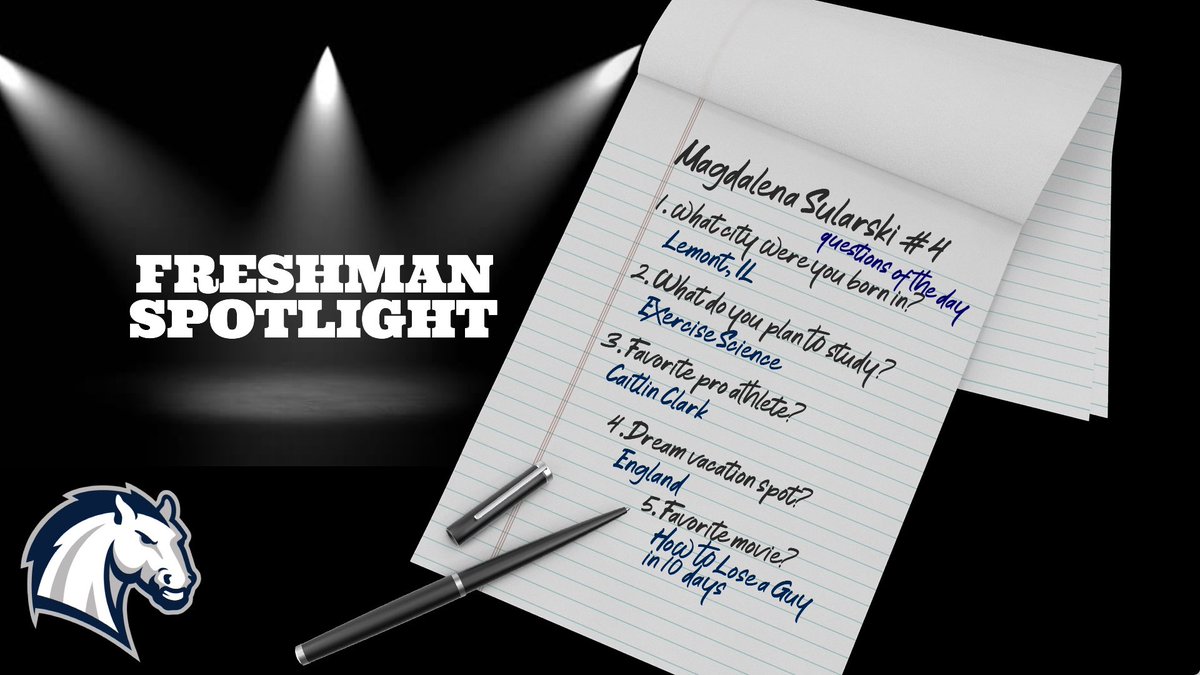 FRESHMAN
SPOTLIGHT
Magdalena Sularski #4
questions of the day
1. What city were you born in?
Lemont, IL
2. What do you plan to study?
EXercise Science
3. Favorite pro athlete?
Caitlin Clark
4. Dream vacation spot?
England
5. Favorite movie?
How to Lose a Guy
in 10 days